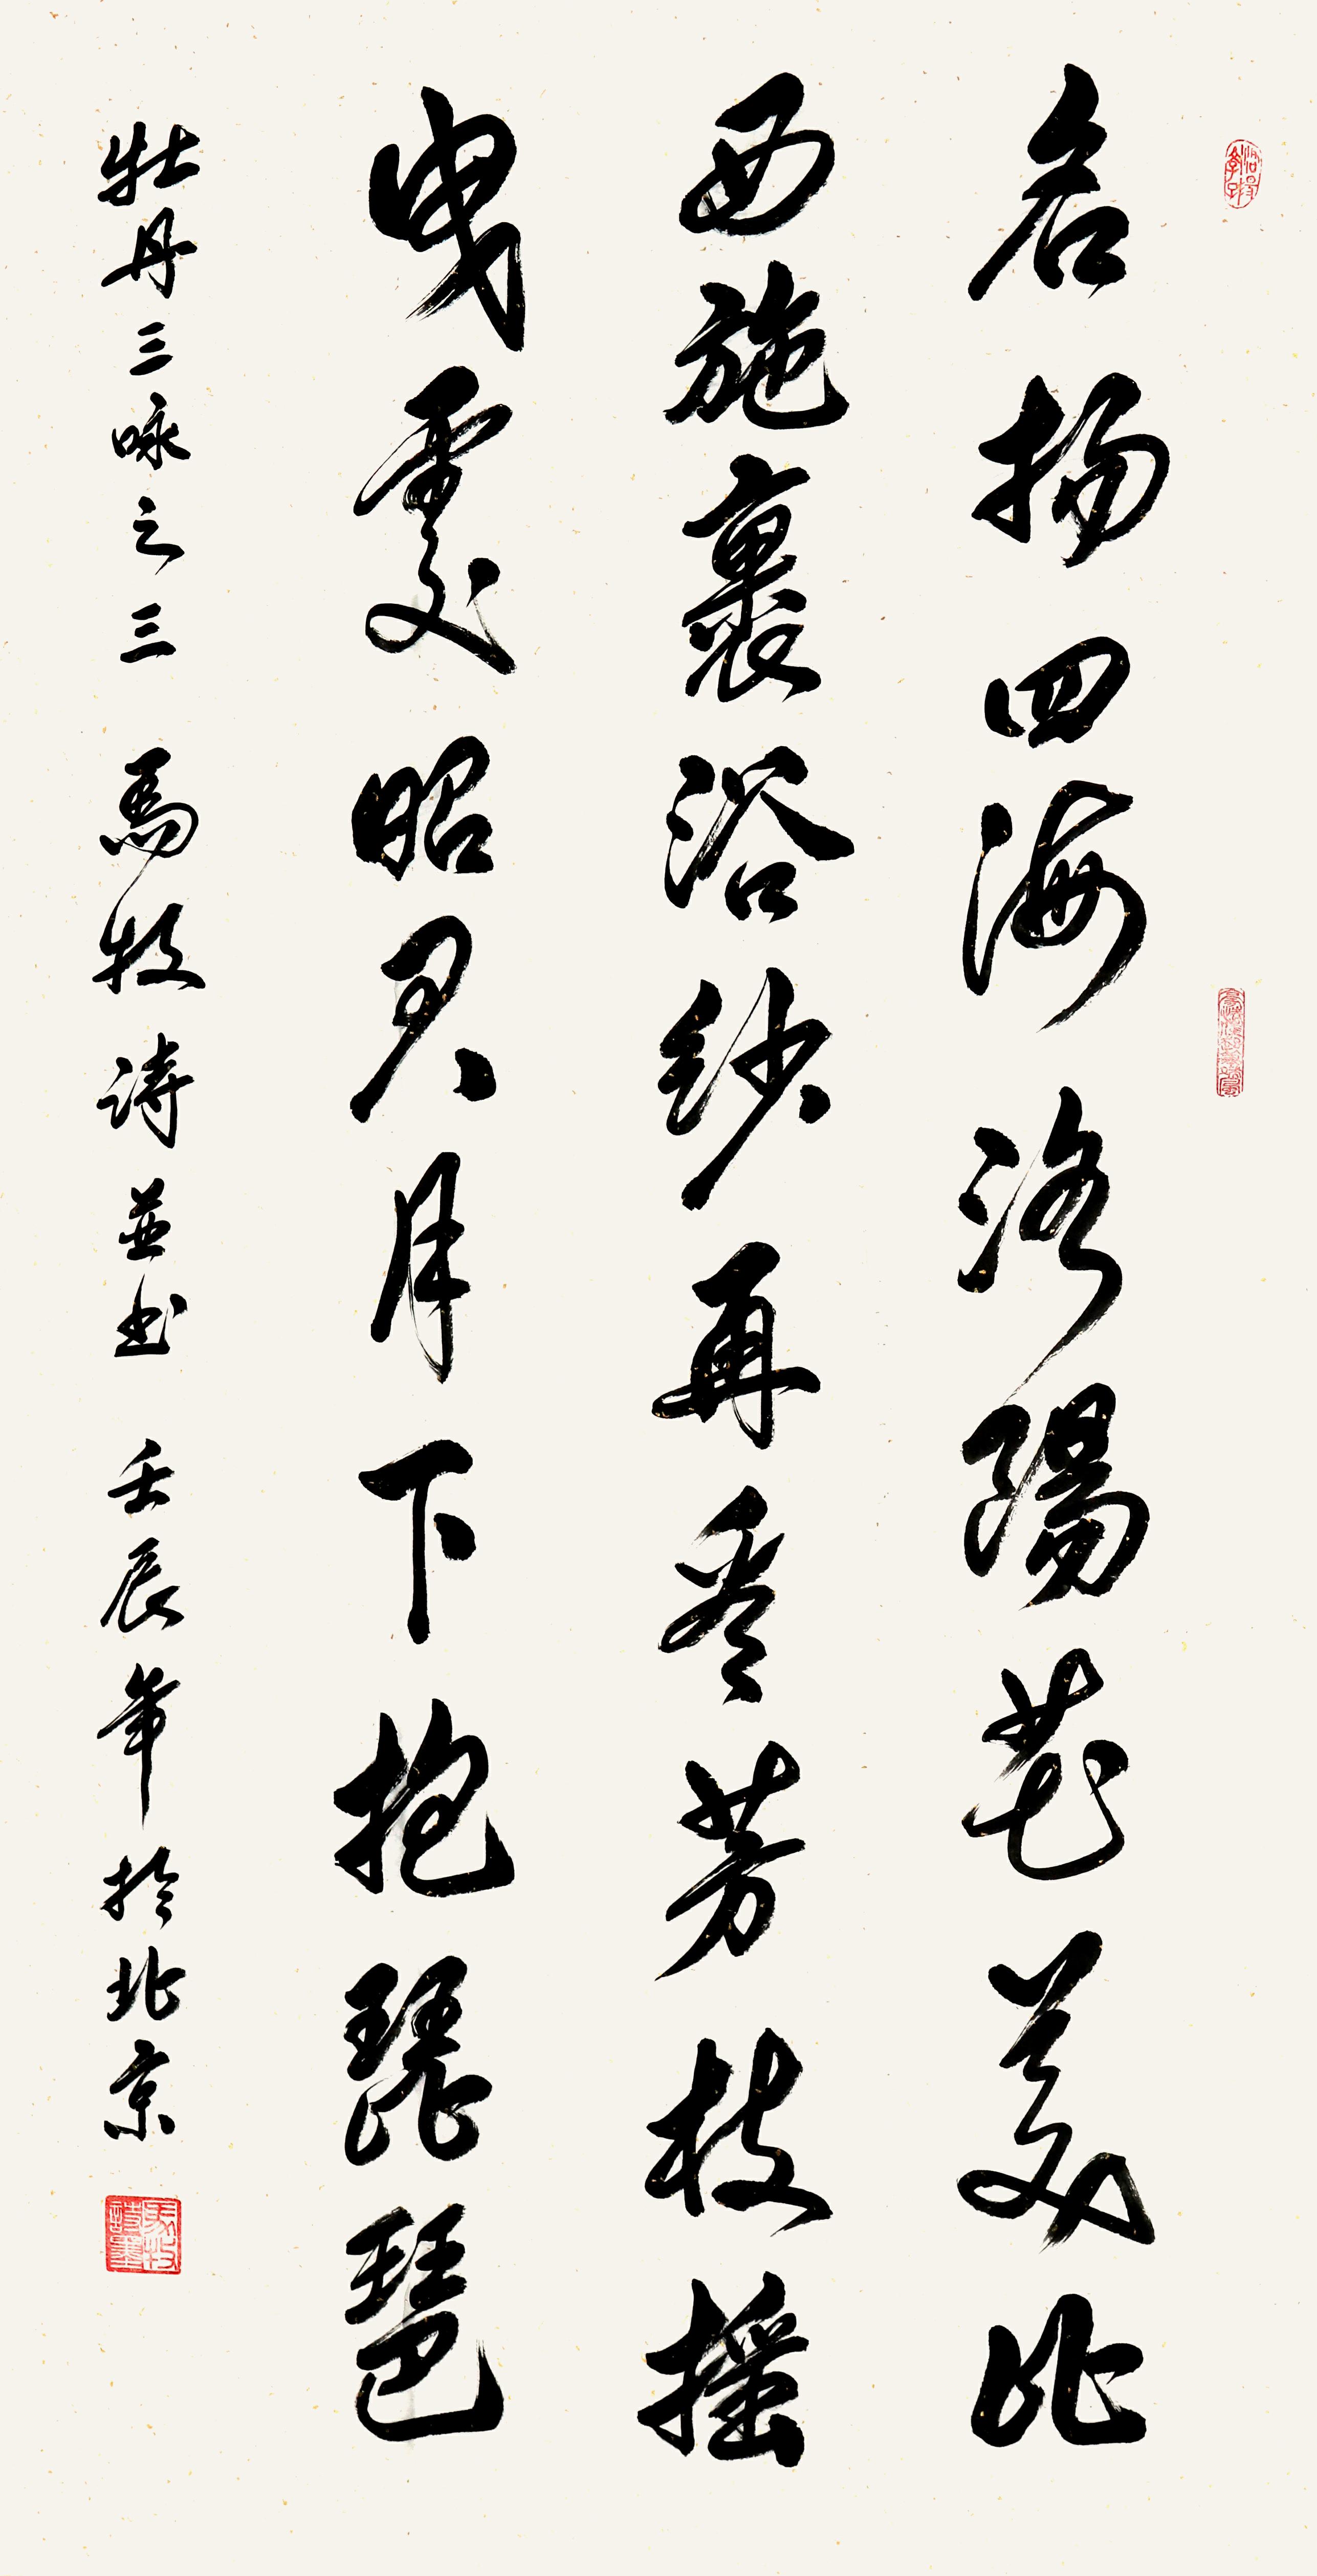 名扬四海洛陽花美比
西施裹浴紗再看芳枝摇
曳處昭君月下抱琵琶
牡丹三咏之三 馬牧詩並書 壬辰年於北京